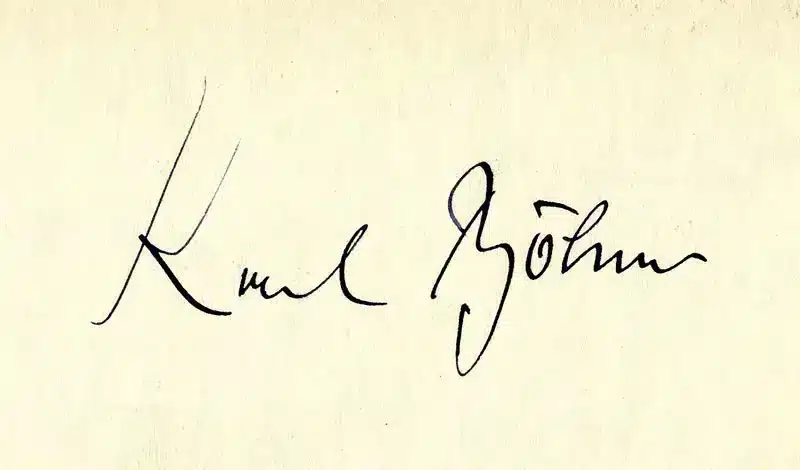 Karl Böhm